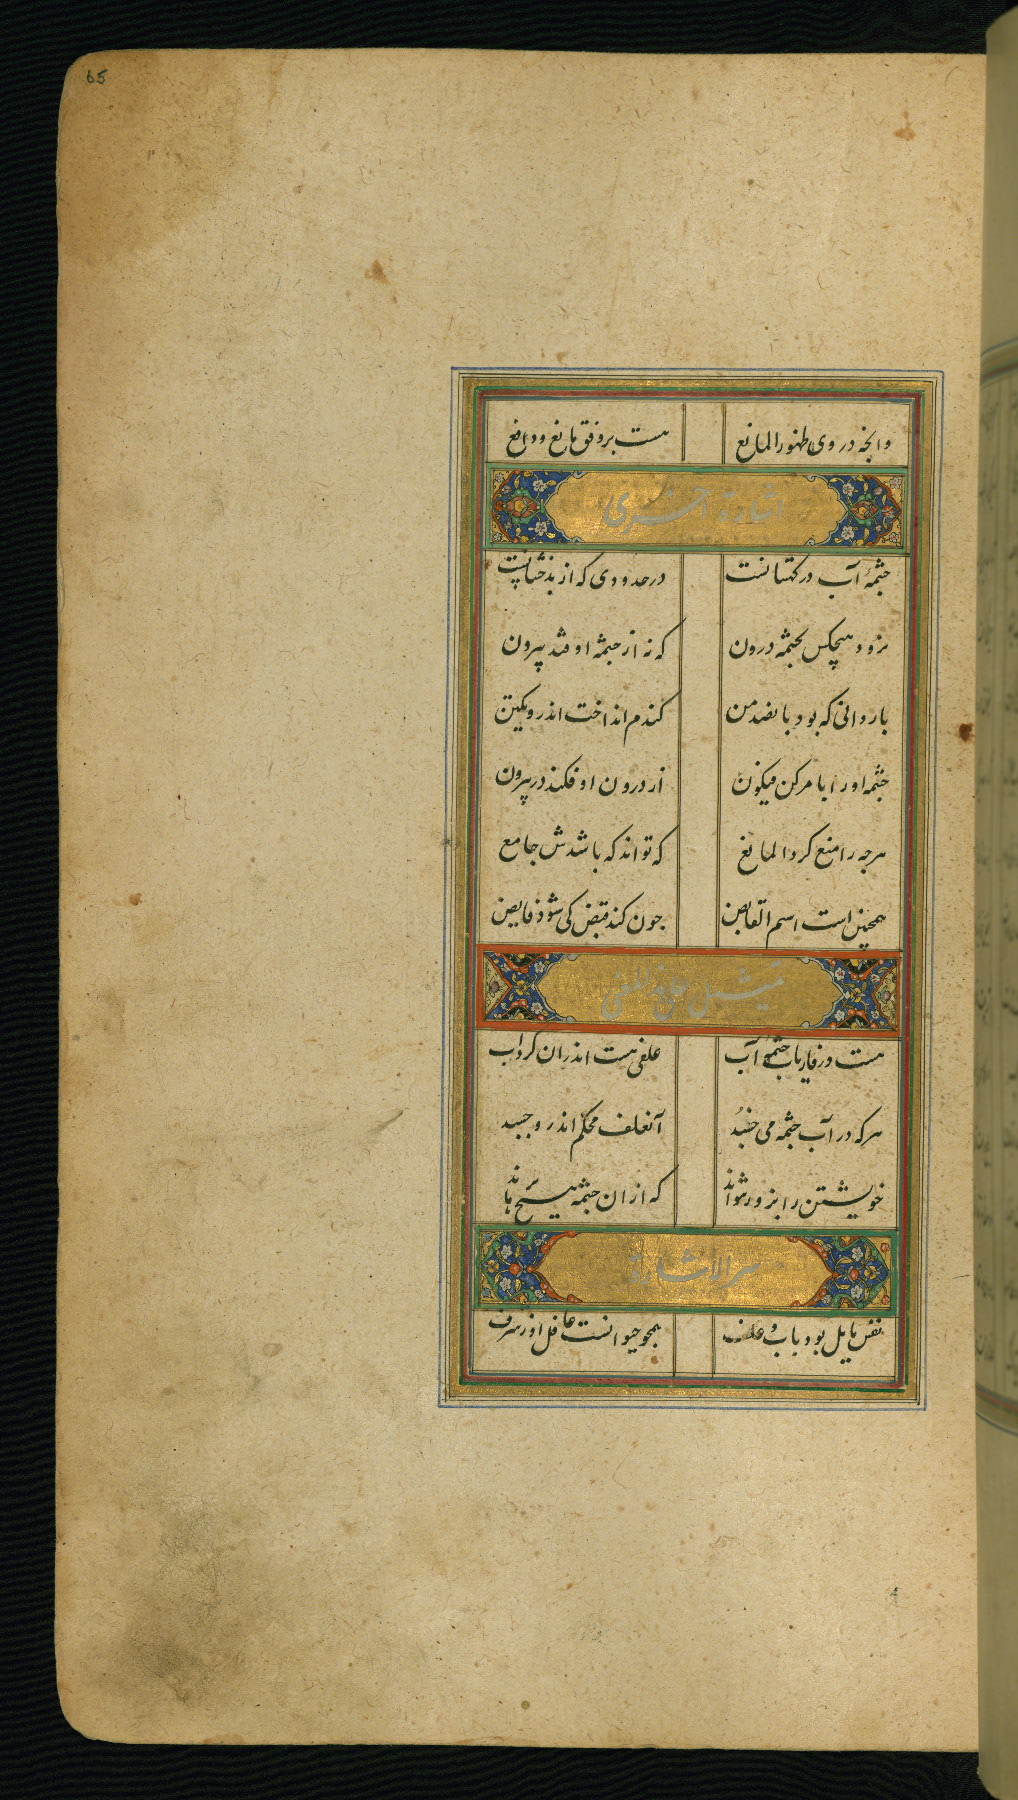 65
وانچه در وی ظهور المانع هست بر وفق مانع و دافع
اشارة اخری
چشمهٔ آب در کتسانست در حدودی که از بدخشانست
نرود هیچکس بچشمه درون که نه از چشمه اوفتد بیرون
بار وانی که بود پانصد من کندم انداخت اندرو یکتن
چشمه اورا بامر کن فیکون از درون اوفکند در بیرون
هرچه را منع کرد المانع که تواند که باشدش جامع
همچنین است اسم القابض چون کند قبض کی شود فایض
تمثیل
هست در فاریاب چشمهٔ آب علفی هست اندران کرداب
هرکه در آب چشمه می خسبد آنعلف محکم اندرو چسبد
خویشتن را بزور نتواند که ازان چشمه هیچ
سر الاشارة
نفس مایل بود باب و علف همچو حیوانست غافل او ز شرف